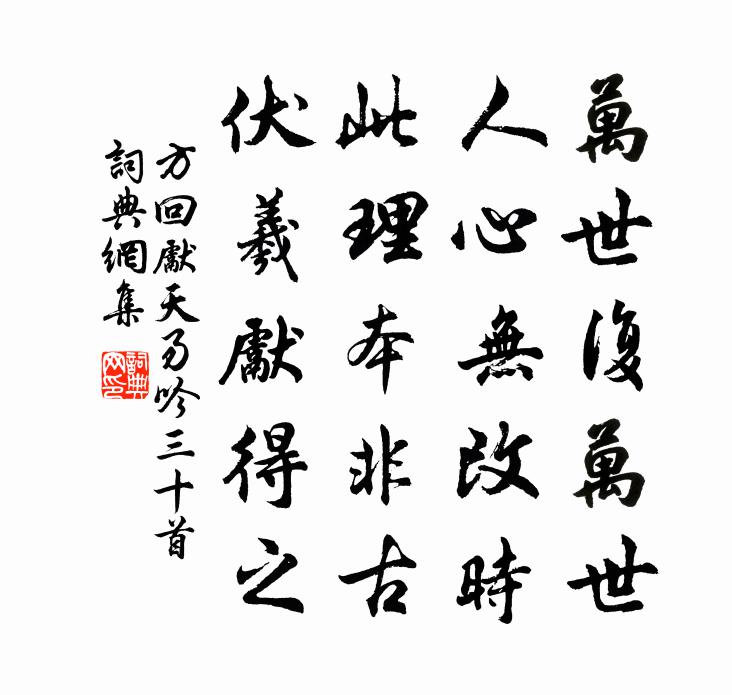 萬世復萬世
人心無改時
此理本非古
伏羲獻得之
方回獻天易吟三十首
詞典網集
詞典网印